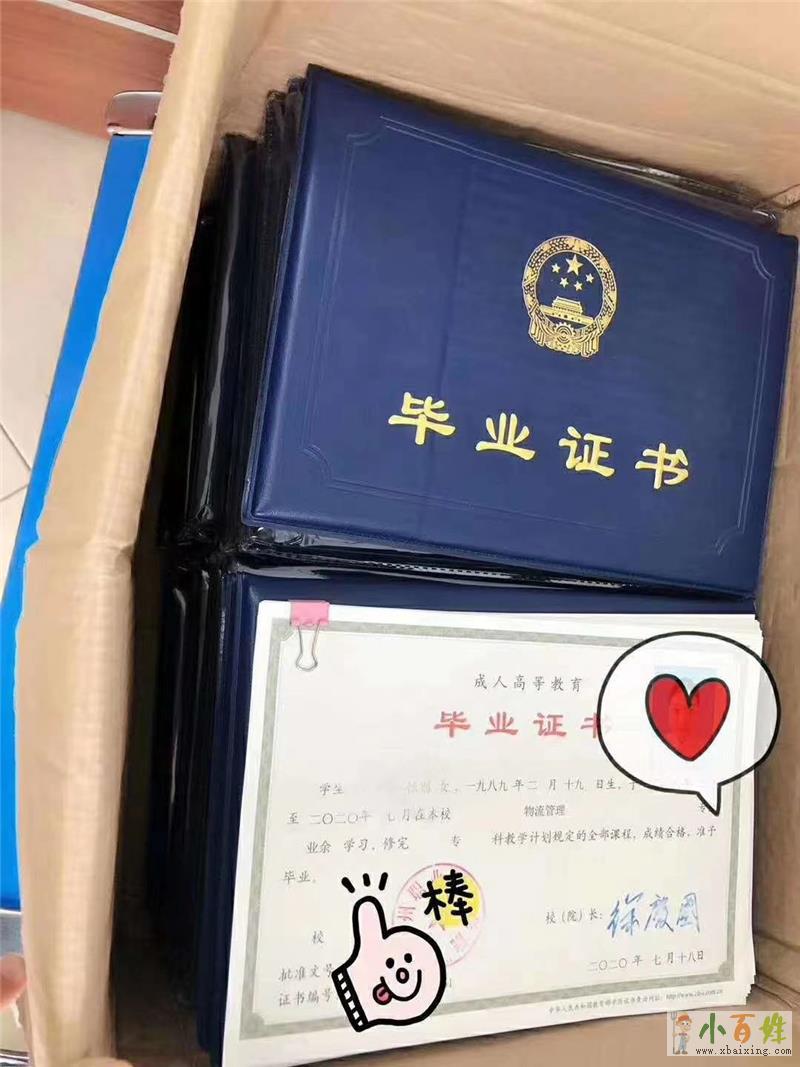 毕业证书
成人高等教育
毕业证书
学生 女，一九八九年二月十九日生，于
至二〇二〇年 七月在本校 物流管理 专
业余 学习，修完 专 科教学计划规定的全部课程，成绩合格，准予
毕业。
棒
校（院）长：徐庆国
校
二〇二〇年 七月十八日
批准文号
证书编号
中华人民共和国教育部学历证书查询网址：http://www.chsi.com.cn
小百姓
www.xbaixing.com